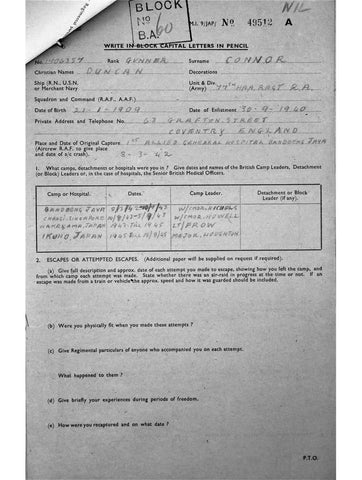 BLOCK
No 60
B.A.
NIL
M.I. 9/JAP/ No 49512 A
WRITE IN BLOCK CAPITAL LETTERS IN PENCIL
No. Rank GUNNER Surname CONNOR
Christian Names DUNCAN Decorations
Ship (R.N., U.S.N. or Merchant Navy Unit & Div. (Army) 77TH HAA. REGT R.A.
Squadron and Command (R.A.F., A.A.F.)
Date of Birth 1909 Date of Enlistment 30-9-1940
Private Address and Telephone No. 63 GRAFTON STREET
COVENTRY ENGLAND
Place and Date of Original Capture 1ST ALLIED GENERAL HOSPITAL JAVA
(Aircrew R.A.F. to give place and date of a/c crash). 8-3-42
1. What camps, detachments or hospitals were you in? Give dates and names of the British Camp Leaders, Detachment (or Block) Leaders or, in case of hospitals, the Senior British Medical Officers.
Camp or Hospital. Dates. Camp Leader. Detachment or Block Leader (if any).
JAVA W/CMDR. NICHOLS
CHANGI SINGAPORE W/CMDR. HOWELL
JAPAN 1943 TILL 1945 LT/ FROW
IKUNO JAPAN 1945 TILL MAJOR. HOUGHTON
2. ESCAPES OR ATTEMPTED ESCAPES. (Additional paper will be supplied on request if required).
(a) Give full description and approx. date of each attempt you made to escape, showing how you left the camp, and from which camp each attempt was made. State whether there was an air-raid in progress at the time or not. If an escape was made from a train or vehicle the approx. speed and how it was guarded should be included.
(b) Were you physically fit when you made these attempts?
(c) Give Regimental particulars of anyone who accompanied you on each attempt.
What happened to them?
(d) Give briefly your experiences during periods of freedom.
(e) How were you recaptured and on what date?
P.T.O.